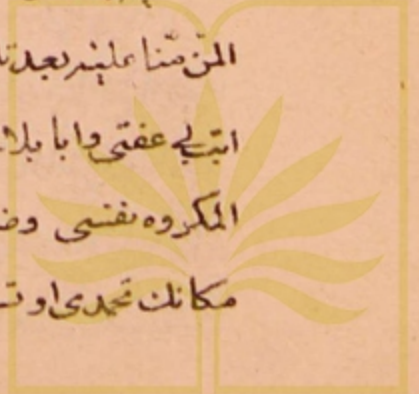 المن مننا عليهم بعد
ابت لي عفتي وابا بلا
المكروه نفسى وض
مكانك تحمدى او تس